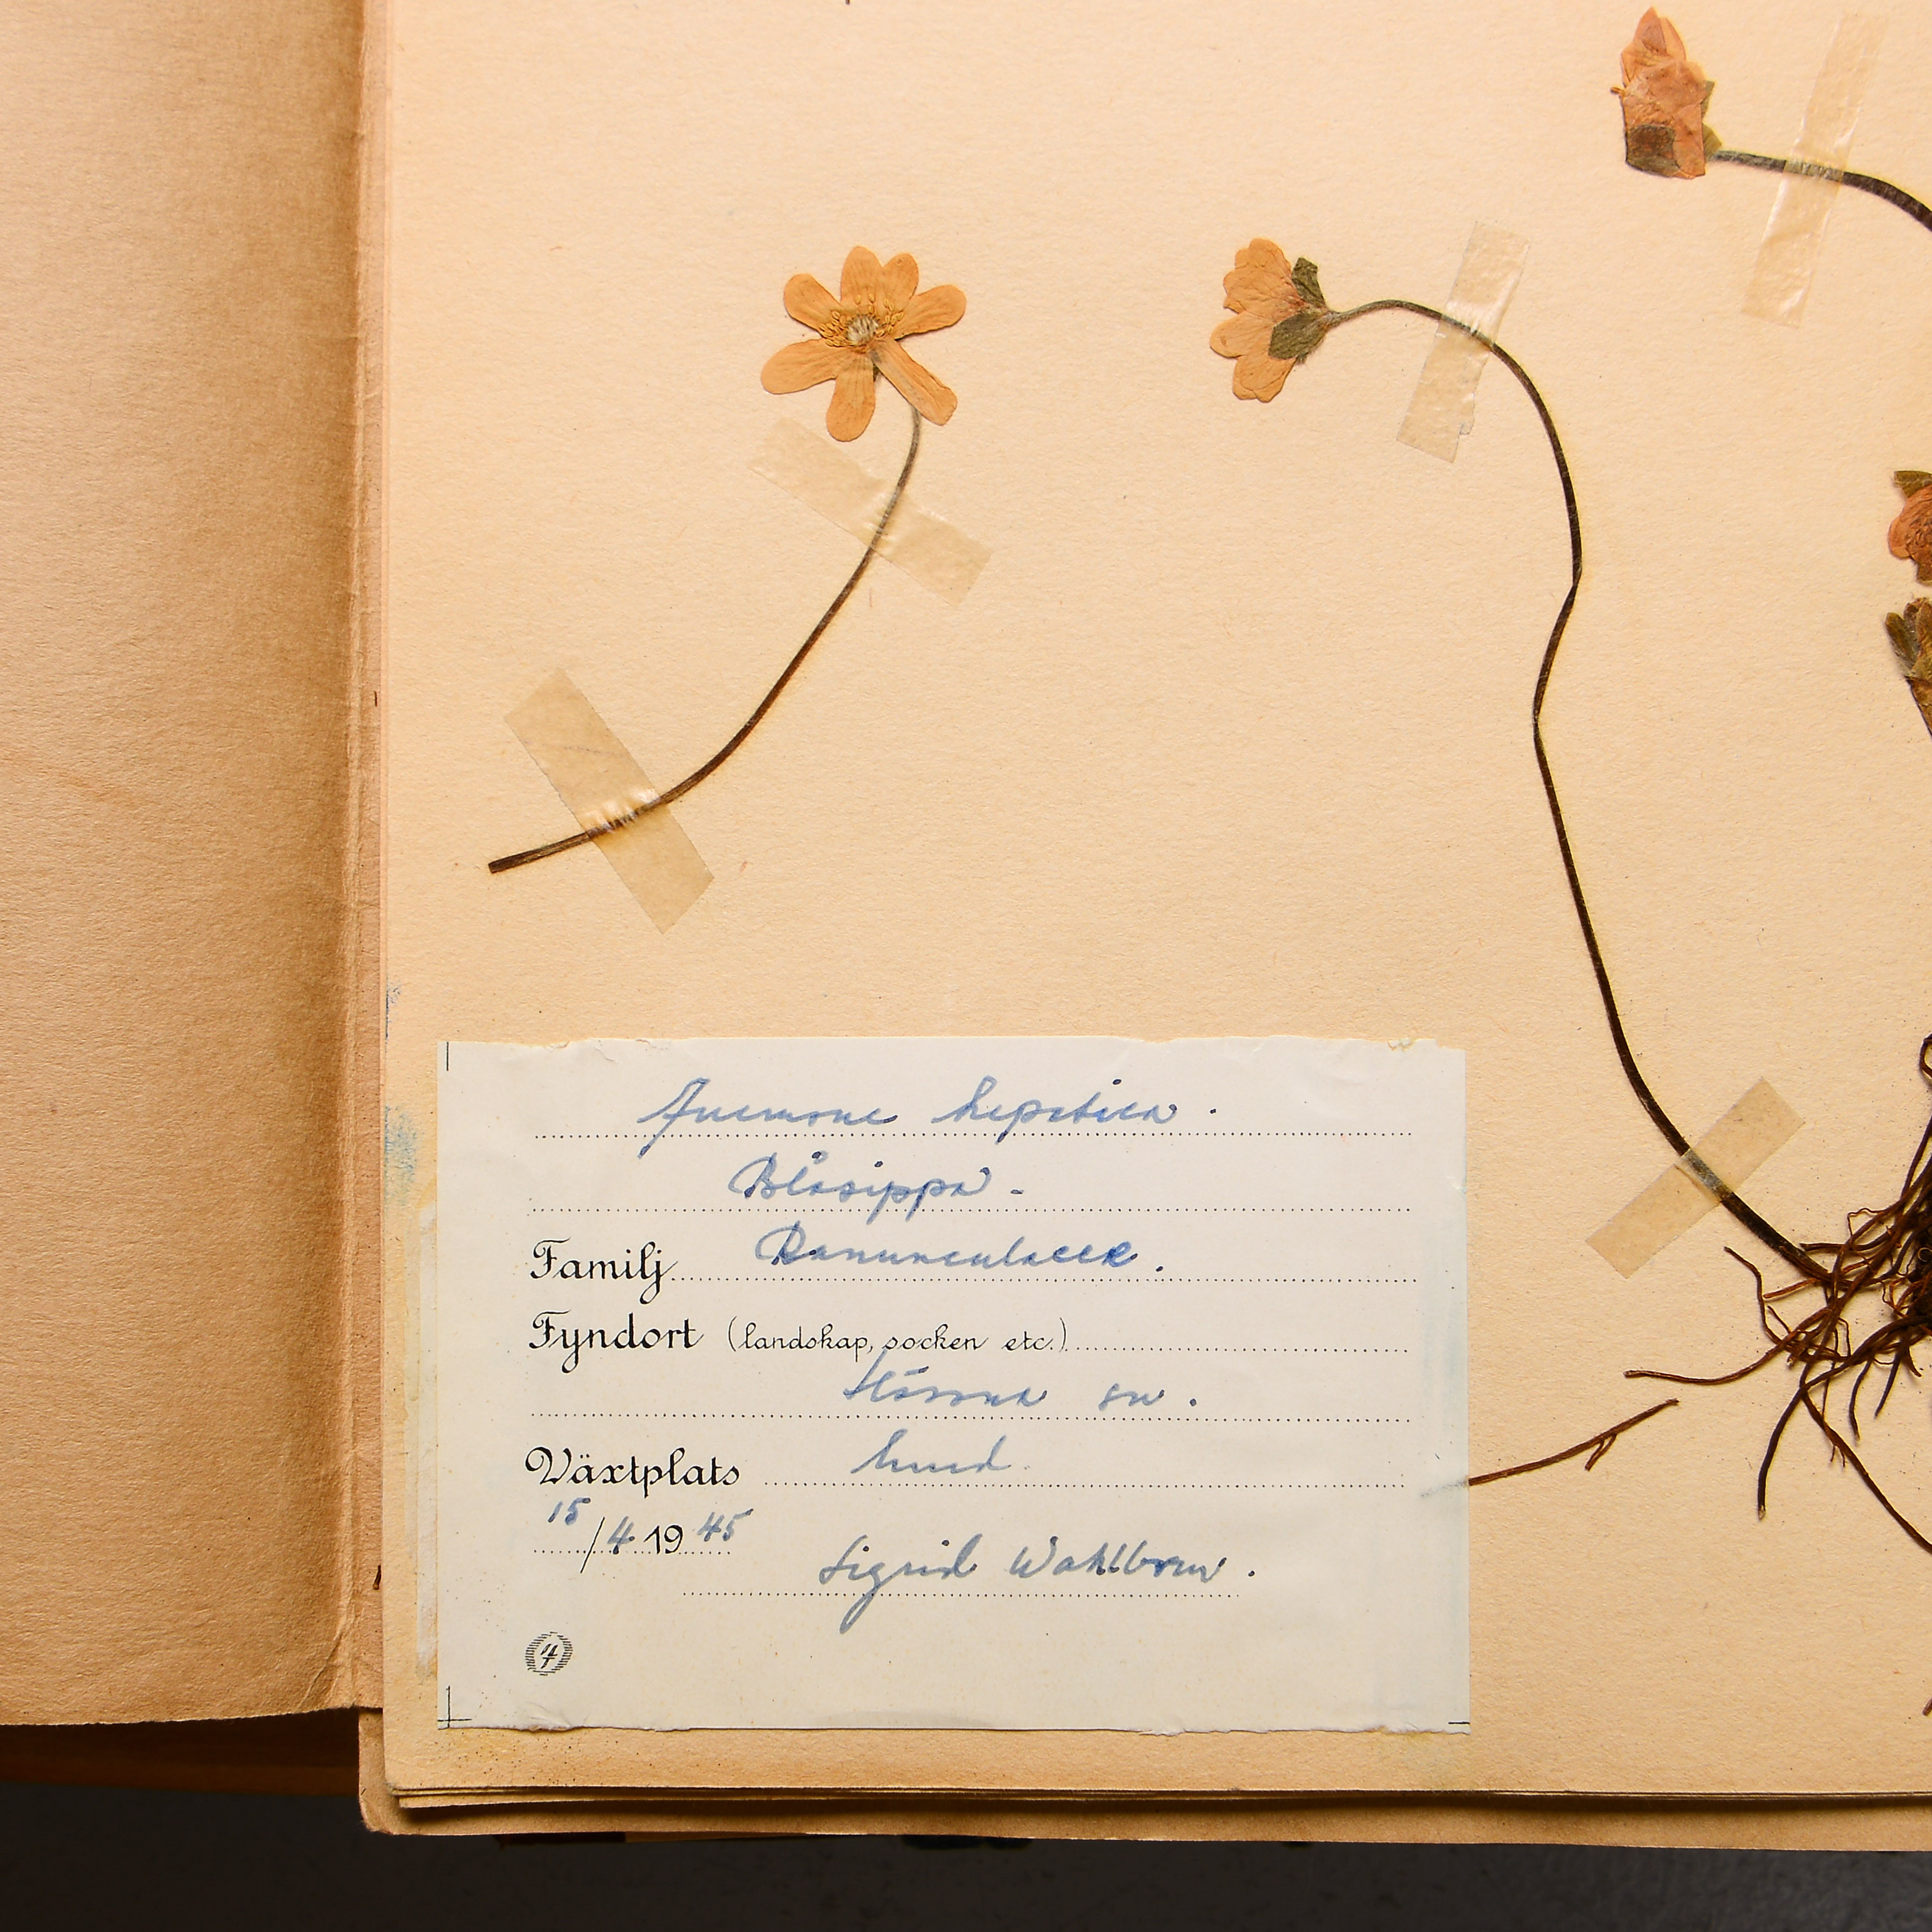 Anemone hepatica.
Blåsippa.
Familj Ranunculaceæ.
Fyndort (landskap, socken etc.)
sn.
Växtplats lund
15/4 1945
Sigrid Wahlbom.
4